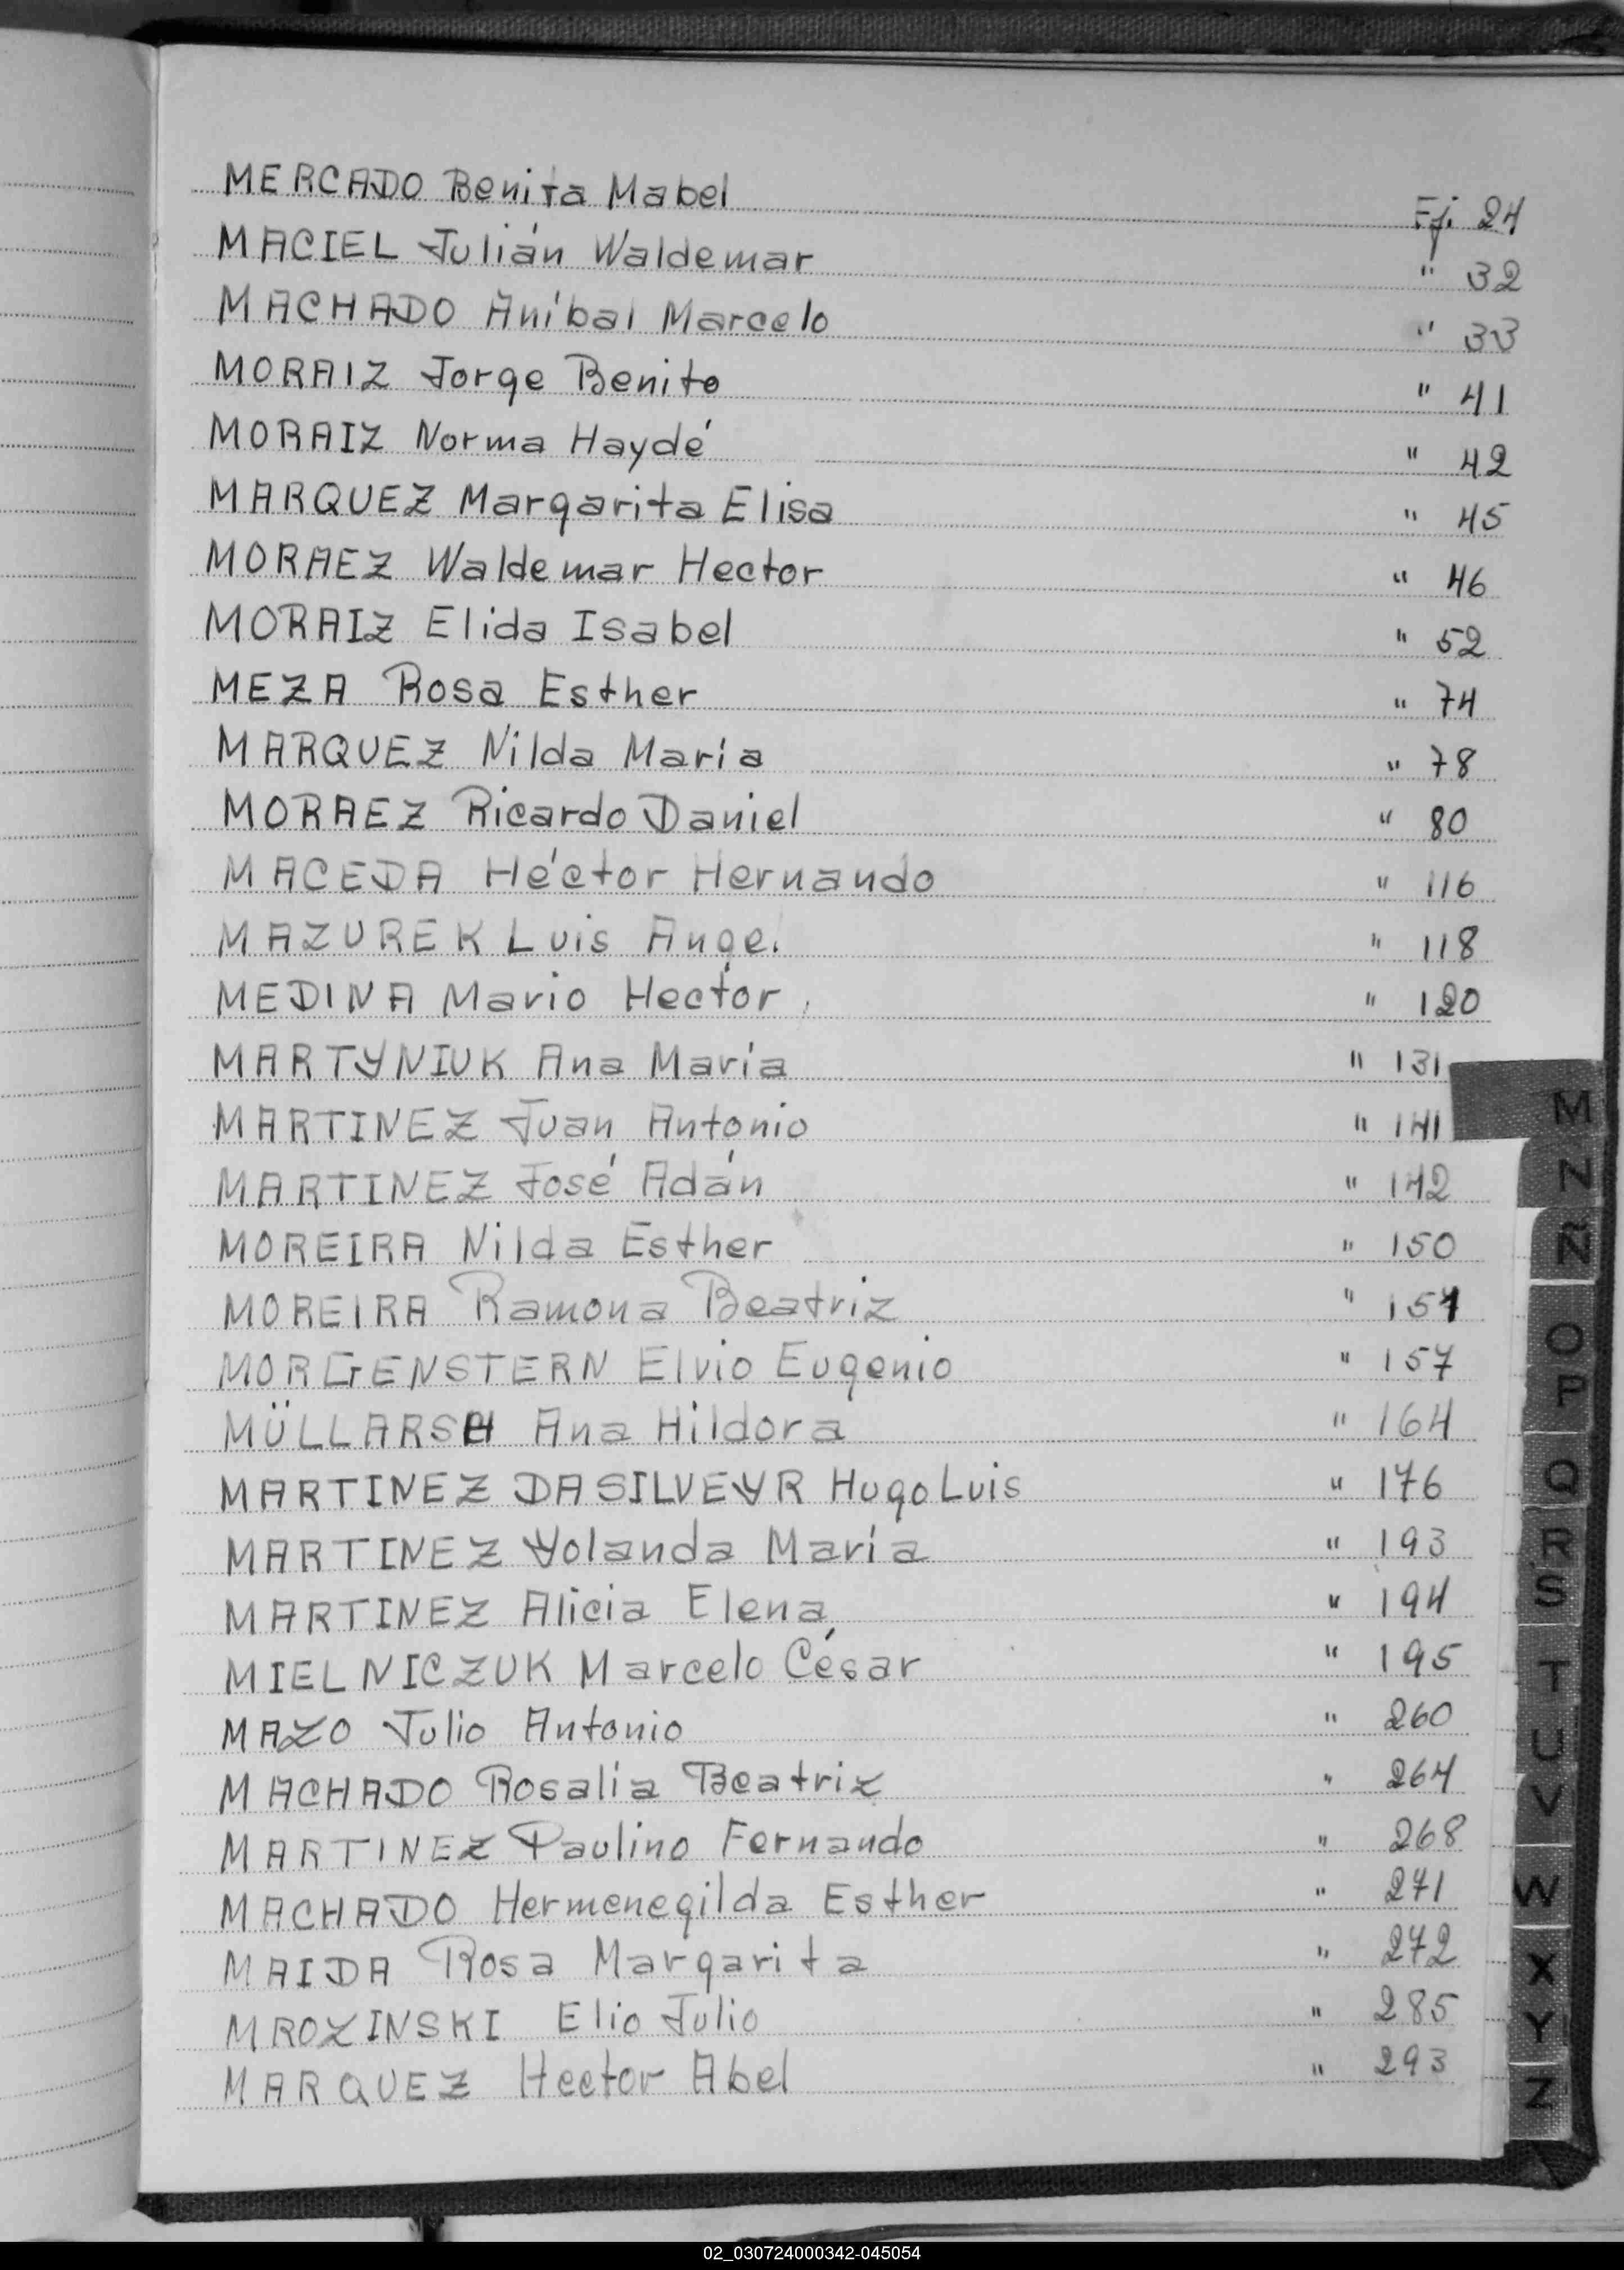 MERCADO Benita Mabel Fj. 24
MACIEL Julián Waldemar " 32
MACHADO Aníbal Marcelo " 33
MORAIZ Jorge Benito " 41
MORAIZ Norma Haydé " 42
MARQUEZ Margarita Elisa " 45
MORAEZ Waldemar Hector " 46
MORAIZ Elida Isabel " 52
MEZA Rosa Esther " 74
MARQUEZ Nilda María " 78
MORAEZ Ricardo Daniel " 80
MACEDA Héctor Hernando " 116
MAZUREK Luis Angel " 118
MEDINA Mario Hector " 120
MARTYNIUK Ana María " 131
MARTINEZ Juan Antonio " 141
MARTINEZ José Adán " 142
MOREIRA Nilda Esther " 150
MOREIRA Ramona Beatriz "
MORGENSTERN Elvio Eugenio " 157
MÜLLARSH Ana Hildora " 164
MARTINEZ DASILVEYR Hugo Luis " 176
MARTINEZ Yolanda María " 193
MARTINEZ Alicia Elena " 194
MIELNICZUK Marcelo César " 195
MAZO Julio Antonio " 260
MACHADO Rosalía Beatriz " 264
MARTINEZ Paulino Fernando " 268
MACHADO Hermenegilda Esther " 271
MAIDA Rosa Margarita " 272
MROZINSKI Elio Julio " 285
MARQUEZ Hector Abel " 293
M
N
Ñ
O
P
Q
R
S
T
U
V
W
X
Y
Z
02_030724000342-045054